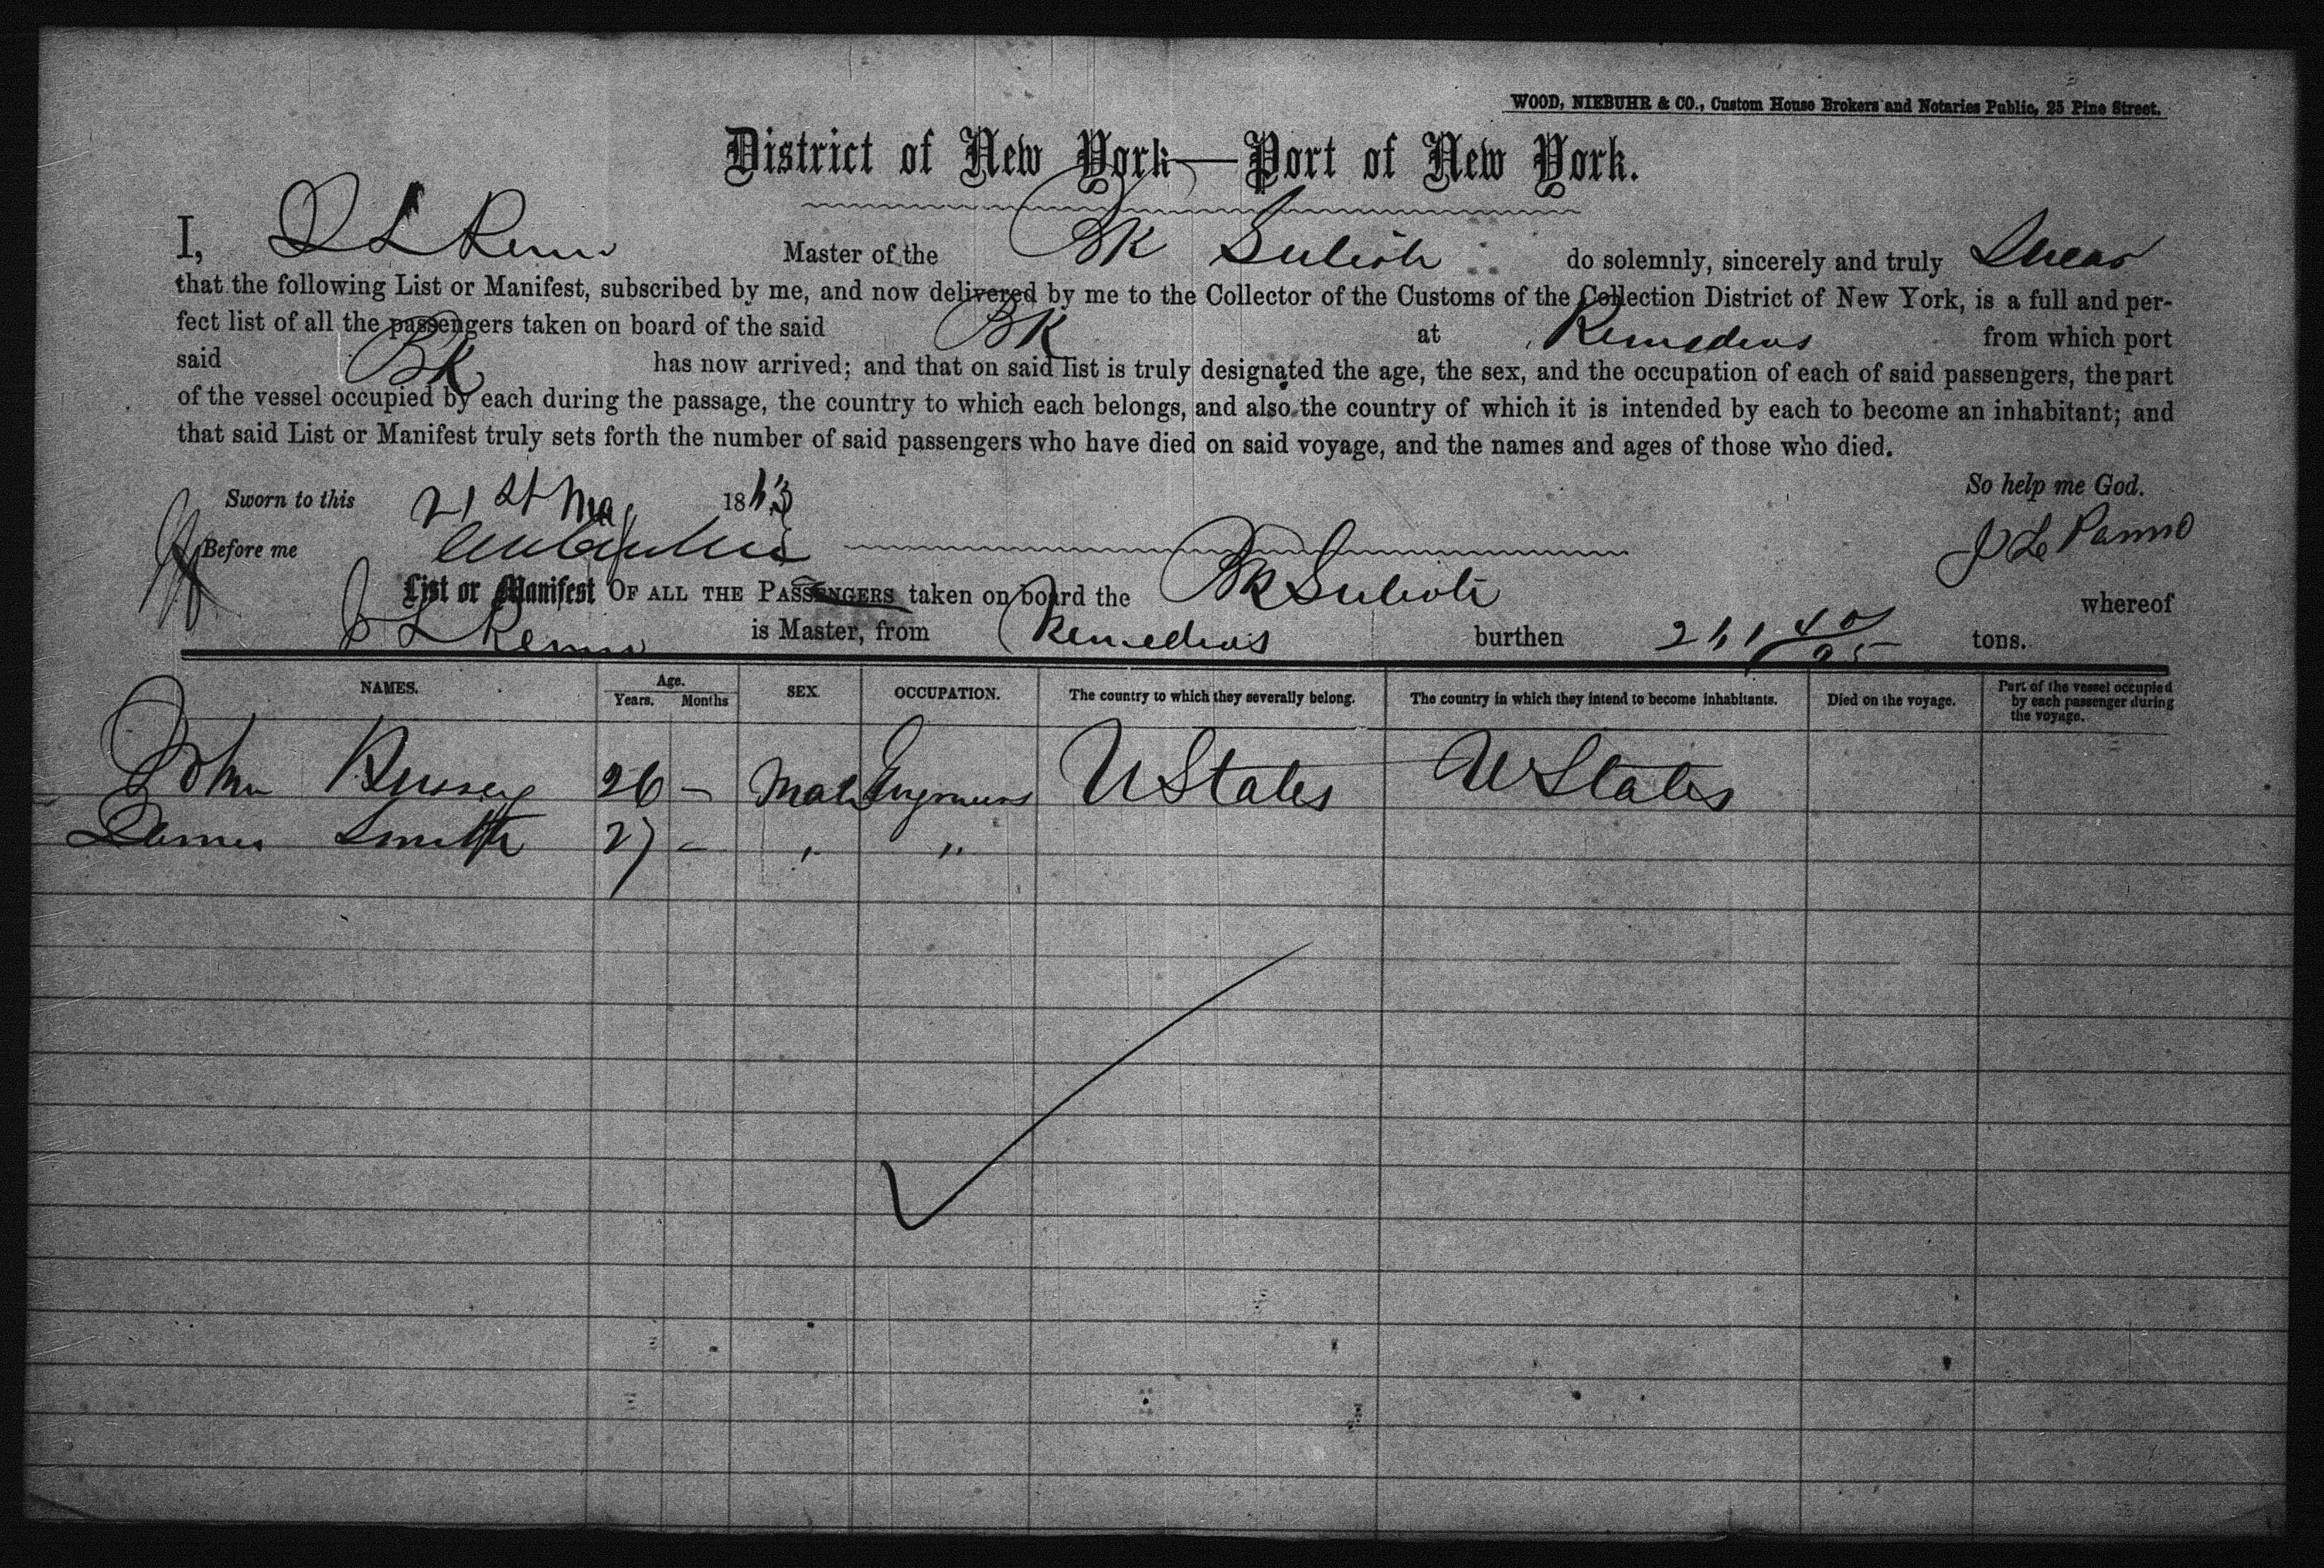 WOOD, NIEBUHR & CO., Custom House Brokers and Notaries Public, 25 Pine Street.
District of New York—Port of New York.
I, J L Master of the Bk Suliote do solemnly, sincerely and truly Swear
that the following List or Manifest, subscribed by me, and now delivered by me to the Collector of the Customs of the Collection District of New York, is a full and per-
fect list of all the passengers taken on board of the said Bk at Remedios from which port
said Bk has now arrived; and that on said list is truly designated the age, the sex, and the occupation of each of said passengers, the part
of the vessel occupied by each during the passage, the country to which each belongs, and also the country of which it is intended by each to become an inhabitant; and
that said List or Manifest truly sets forth the number of said passengers who have died on said voyage, and the names and ages of those who died.
So help me God.
Sworn to this 21st May 1863
Before me
List or Manifest OF ALL THE PASSENGERS taken on board the Bk Suliote whereof
J L is Master, from Remedios burthen 261 40/95 tons.
NAMES. Age. Years. Months SEX. OCCUPATION. The country to which they severally belong. The country in which they intend to become inhabitants. Died on the voyage. Part of the vessel occupied by each passenger during the voyage.
John 26 – Male Engineers U States U States
James Smith 27 – " "